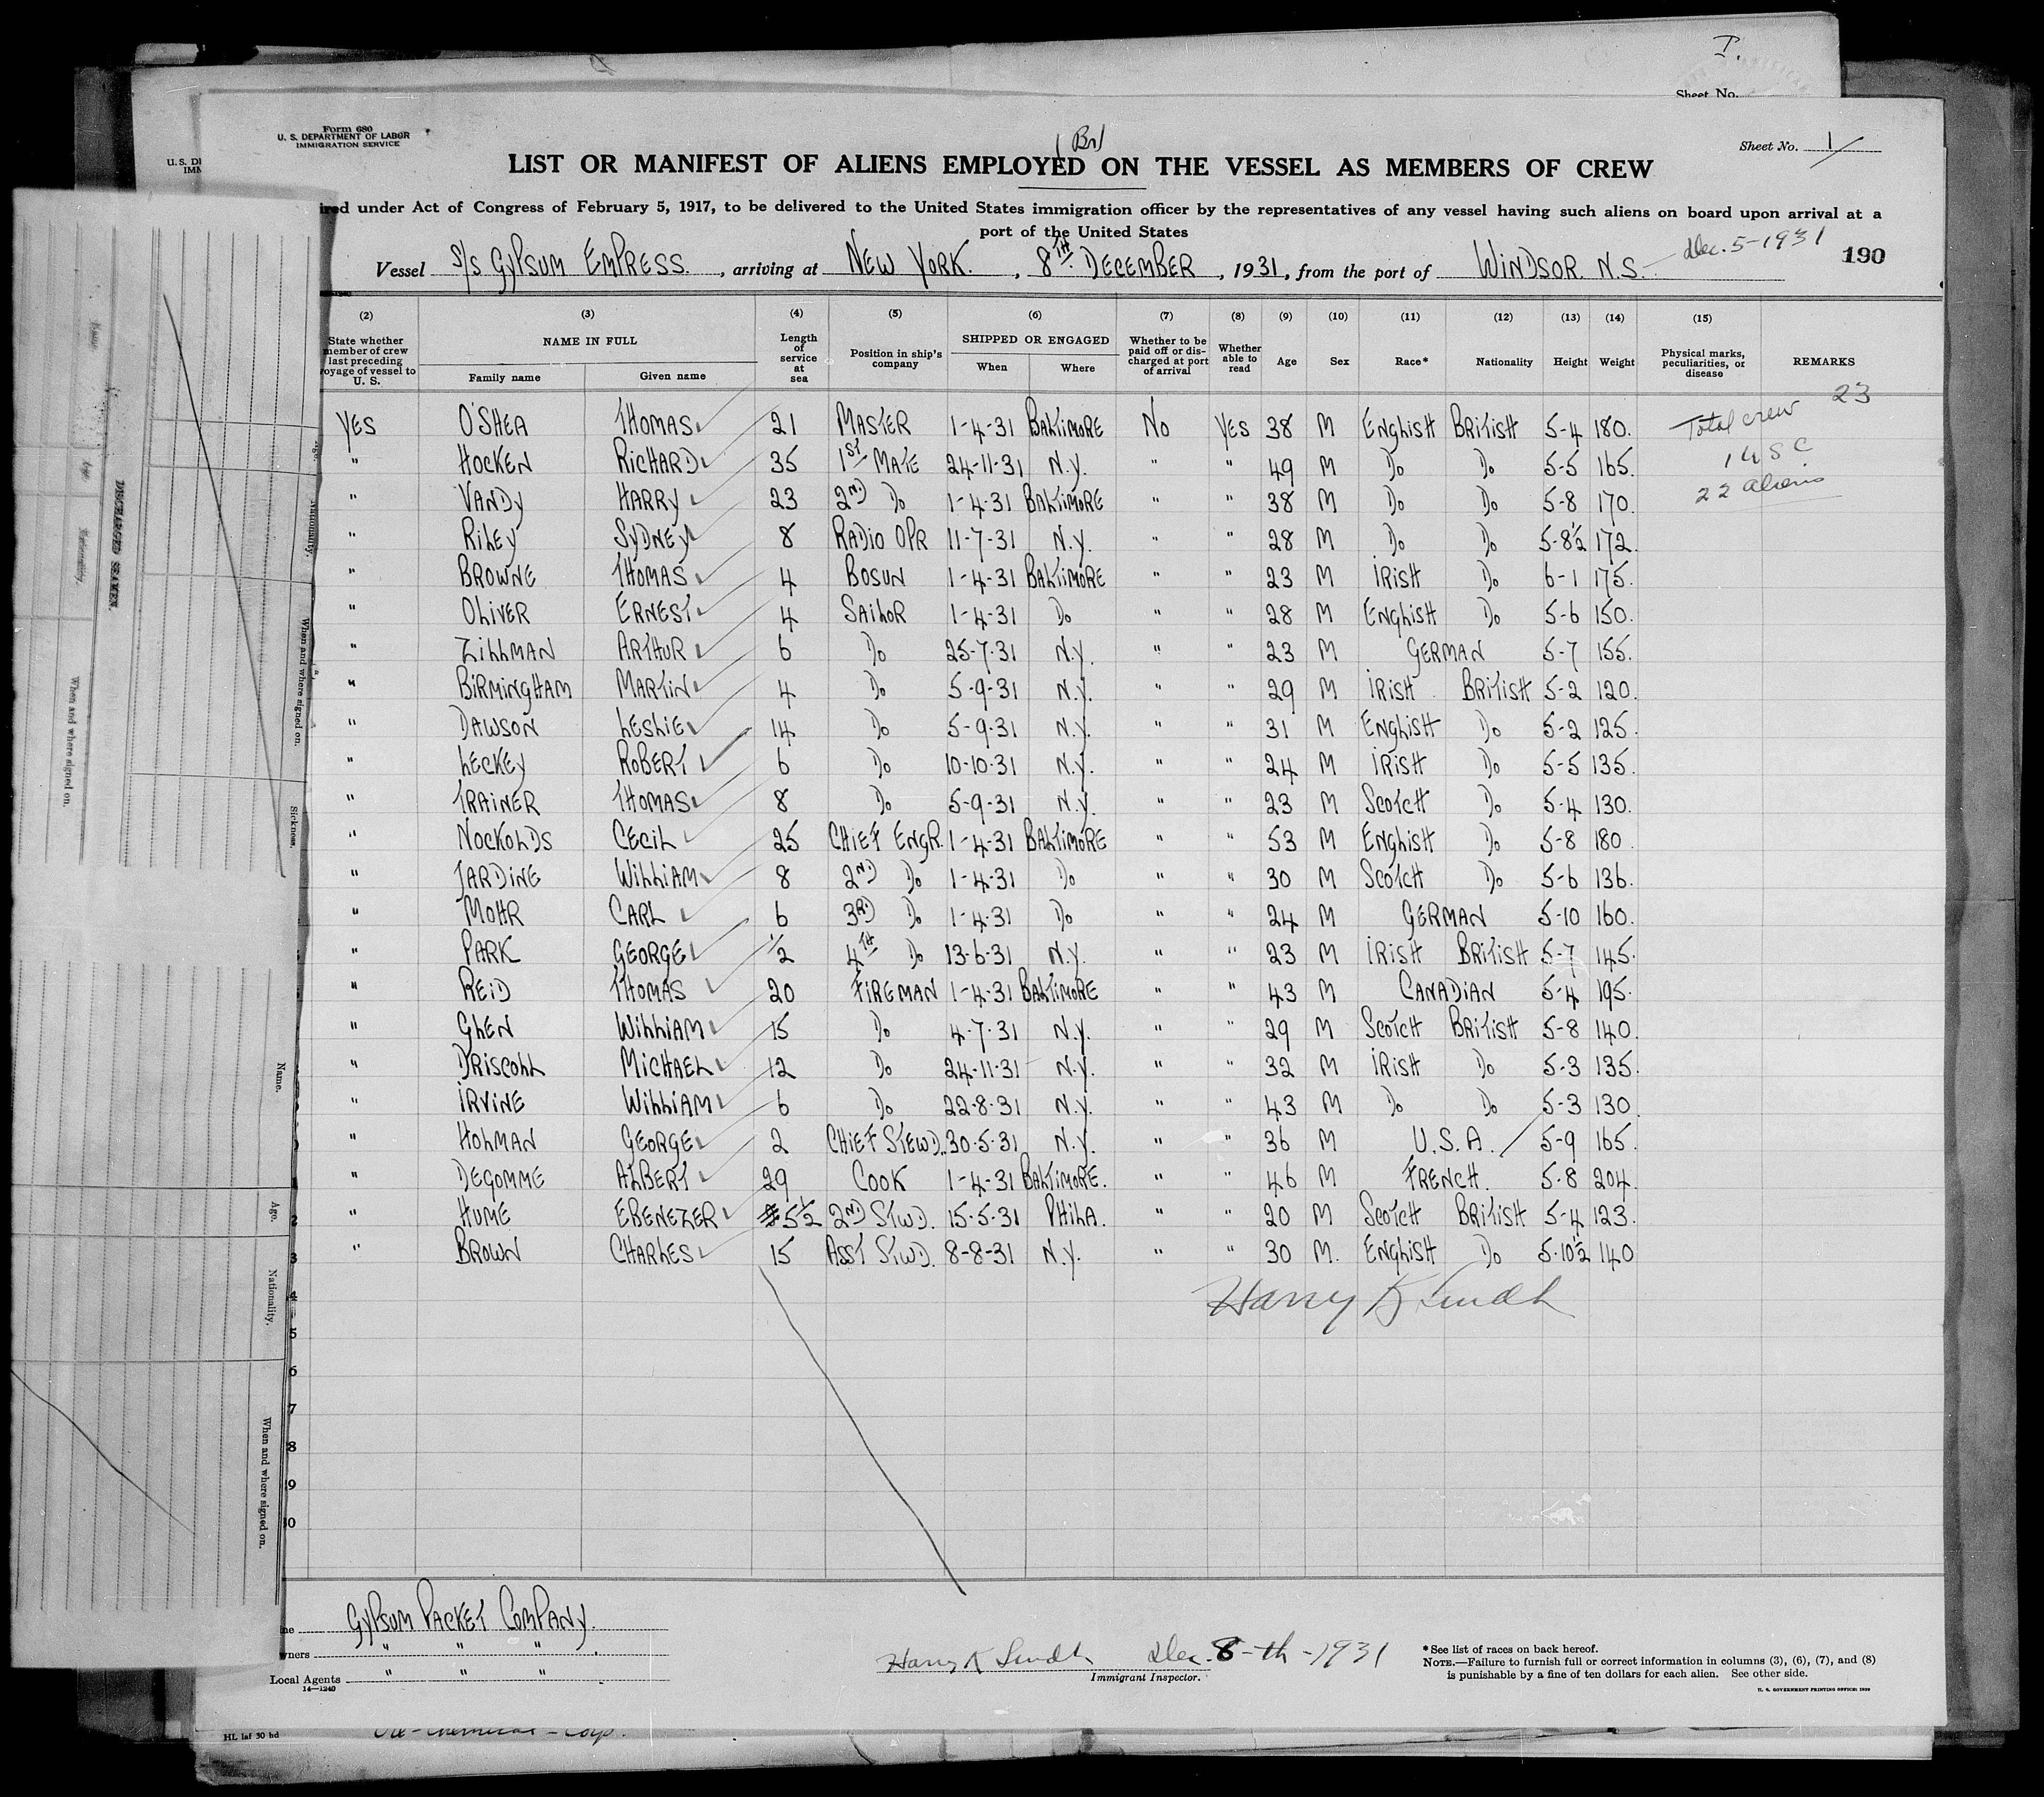 I.
Sheet No.
Form 680
U. S. DEPARTMENT OF LABOR
IMMIGRATION SERVICE
U. S. DE
IMM
(Br)
Sheet No. 1
LIST OR MANIFEST OF ALIENS EMPLOYED ON THE VESSEL AS MEMBERS OF CREW
ired under Act of Congress of February 5, 1917, to be delivered to the United States immigration officer by the representatives of any vessel having such aliens on board upon arrival at a
port of the United States
Vessel S/S GYPSUM EMPRESS. , arriving at NEW YORK. , 8TH DECEMBER , 1931, from the port of WINDSOR. N.S. Dec. 5-1931 190
(2) (3) (4) (5) (6) (7) (8) (9) (10) (11) (12) (13) (14) (15)
State whether member of crew last preceding voyage of vessel to U. S. NAME IN FULL Family name Given name Length of service at sea Position in ship's company SHIPPED OR ENGAGED When Where Whether to be paid off or discharged at port of arrival Whether able to read Age Sex Race* Nationality Height Weight Physical marks, peculiarities, or disease REMARKS
YES O'SHEA THOMAS 21 MASTER 1-4-31 BALTIMORE NO YES 38 M ENGLISH BRITISH 5-4 180. Total crew 23
" HOCKEN RICHARD 35 1ST MATE 24-11-31 N.Y. " " 49 M DO DO 5-5 165. 1 USC
" VANDY HARRY 23 2ND DO 1-4-31 BALTIMORE " " 38 M DO DO 5-8 170. 22 aliens
" RILEY SYDNEY 8 RADIO OPR 11-7-31 N.Y. " " 28 M DO DO 5-8½ 172.
" BROWNE THOMAS 4 BOSUN 1-4-31 BALTIMORE " " 23 M IRISH DO 6-1 175.
" OLIVER ERNEST 4 SAILOR 1-4-31 DO " " 28 M ENGLISH DO 5-6 150.
" ZILLMAN ARTHUR 6 DO 25-7-31 N.Y. " " 23 M GERMAN 5-7 155.
" BIRMINGHAM MARTIN 4 DO 5-9-31 N.Y. " " 29 M IRISH BRITISH 5-2 120.
" DAWSON LESLIE 14 DO 5-9-31 N.Y. " " 31 M ENGLISH DO 5-2 125.
" LECKEY ROBERT 6 DO 10-10-31 N.Y. " " 24 M IRISH DO 5-5 135.
" TRAINER THOMAS 8 DO 5-9-31 N.Y. " " 23 M SCOTCH DO 5-4 130.
" NOCKOLDS CECIL 25 CHIEF ENGR. 1-4-31 BALTIMORE " " 53 M ENGLISH DO 5-8 180.
" JARDINE WILLIAM 8 2ND DO 1-4-31 DO " " 30 M SCOTCH DO 5-6 136.
" MOHR CARL 6 3RD DO 1-4-31 DO " " 24 M GERMAN 5-10 160.
" PARK GEORGE ½ 4TH DO 13-6-31 N.Y. " " 23 M IRISH BRITISH 5-7 145.
" REID THOMAS 20 FIREMAN 1-4-31 BALTIMORE " " 43 M CANADIAN 5-4 195.
" GLEN WILLIAM 15 DO 4-7-31 N.Y. " " 29 M SCOTCH BRITISH 5-8 140.
" DRISCOLL MICHAEL 12 DO 24-11-31 N.Y. " " 32 M IRISH DO 5-3 135.
" IRVINE WILLIAM 6 DO 22-8-31 N.Y. " " 43 M DO DO 5-3 130.
" HOLMAN GEORGE 2 CHIEF STEWD. 30-5-31 N.Y. " " 36 M U.S.A. 5-9 165.
" DEGOMME ALBERT 29 COOK 1-4-31 BALTIMORE. " " 46 M FRENCH. 5-8 204.
2 " HUME EBENEZER 5½ 2ND STWD. 15-5-31 PHILA. " " 20 M SCOTCH BRITISH 5-4 123.
3 " BROWN CHARLES 15 ASST STWD. 8-8-31 N.Y. " " 30 M. ENGLISH DO 5-10½ 140
4
5
6
7
8
9
0
Harry K Lindh
ne GYPSUM PACKET COMPANY.
wners " " " .
Local Agents " " "
14—1240
Harry K Lindh Dec. 8-th-1931
Immigrant Inspector.
*See list of races on back hereof.
NOTE.—Failure to furnish full or correct information in columns (3), (6), (7), and (8)
is punishable by a fine of ten dollars for each alien. See other side.
U. S. GOVERNMENT PRINTING OFFICE: 1930
HL laf 30 hd
DISCHARGED SEAMEN.
Name
Age
Nationality.
When and where signed on.
Age.
Nationality.
When and where signed on.
Sickness.
Name.
Age.
Nationality.
When and where signed on.